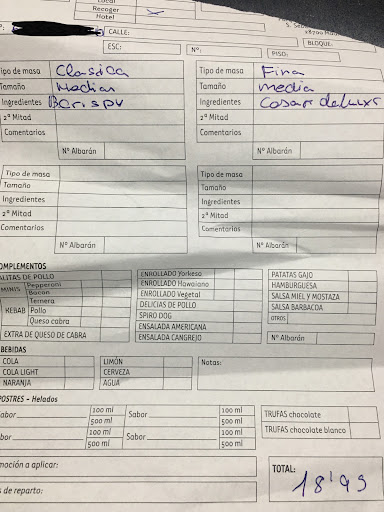 Local
Recoger
Hotel
28700 
CALLE: BLOQUE:
ESC: Nº: PISO:
Tipo de masa Clasica Tipo de masa Fina
Tamaño Median Tamaño media
Ingredientes Bcrispy Ingredientes Cesar deluxe
2ª Mitad 2ª Mitad
Comentarios Comentarios
Nº Albarán Nº Albarán
Tipo de masa Tipo de masa
Tamaño Tamaño
Ingredientes Ingredientes
2ª Mitad 2ª Mitad
Comentarios Comentarios
Nº Albarán Nº Albarán
COMPLEMENTOS
ALITAS DE POLLO ENROLLADO Yorkeso PATATAS GAJO
MINIS Pepperoni ENROLLADO Hawaiano HAMBURGUESA
Bacon ENROLLADO Vegetal SALSA MIEL Y MOSTAZA
Ternera DELICIAS DE POLLO SALSA BARBACOA
KEBAB Pollo SPIRO DOG OTROS
Queso cabra ENSALADA AMERICANA
EXTRA DE QUESO DE CABRA ENSALADA CANGREJO Nº Albarán
BEBIDAS
COLA LIMÓN Notas:
COLA LIGHT CERVEZA
NARANJA AGUA
POSTRES - Helados
Sabor 100 ml Sabor 100 ml TRUFAS chocolate
500 ml 500 ml
Sabor 100 ml Sabor 100 ml TRUFAS chocolate blanco
500 ml 500 ml
moción a aplicar: TOTAL:
s de reparto: 18'99